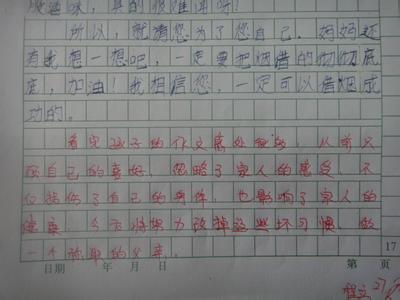 油味，真的很难闻呀！
所以，就请您为了您自己、妈妈还
有我想一想吧，一定要把烟借的彻彻底
底，加油！我相信您，一定可以借烟成
功的。
看完孩子的作文感处颇多，从前只
顾自己的喜好，忽略了家人的感受，不
仅损伤了自己的身体，也影响了家人的
健康，今后将努力改掉这些坏习惯，做
一个称职的父亲。
17
日期 年 月 日 第 页